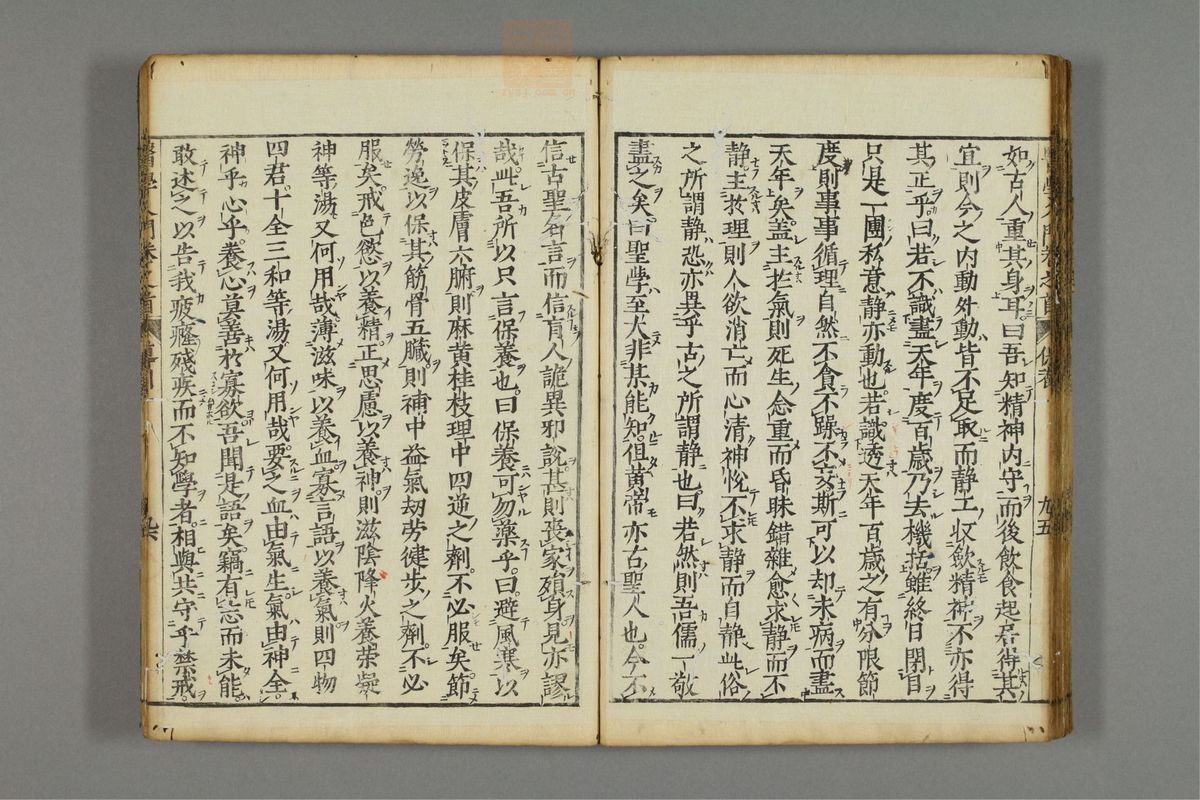 如古人重其身耳曰吾知精神内守而後飲食起居得其
宜則今之内動外動皆不足取而静工収歛精神不亦得
其正乎曰若不識盡天年度百歳乃去機括雖終日閉目
只是一團私意静亦動也若識透天年百歳之有分限節
度則事事循理自然不貪不躁不妄斯可以却未病而盡
天年矣盖主於氣則死生念重而昏昧錯雜愈求静而不
静主於理則人欲消亡而心清神悦不求静而自静此俗
之所謂静恐亦異乎古之所謂静也曰若然則吾儒一敬
盡之矣曰聖學至大非某能知但黄帝亦古聖人也今不
信古聖名言而信盲人詭異邪説甚則喪家殞身見亦謬
哉此吾所以只言保養也曰保養可勿藥乎曰避風寒以
保其皮膚六腑則麻黄桂枝理中四逆之劑不必服矣節
勞逸以保其筋骨五臓則補中益氣劫労健歩之劑不必
服矣戒色慾以養精正思慮以養神則滋陰降火養荣凝
神等湯又何用哉薄滋味以養血寡言語以養氣則四物
四君十全三和等湯又何用哉要之血由氣生氣由神全
神乎心乎養心莫善於寡欲吾聞是語矣竊有志而未能
敢述之以告我疲癃殘疾而不知學者相與共守乎禁戒
醫學入門卷之首
保養
九五